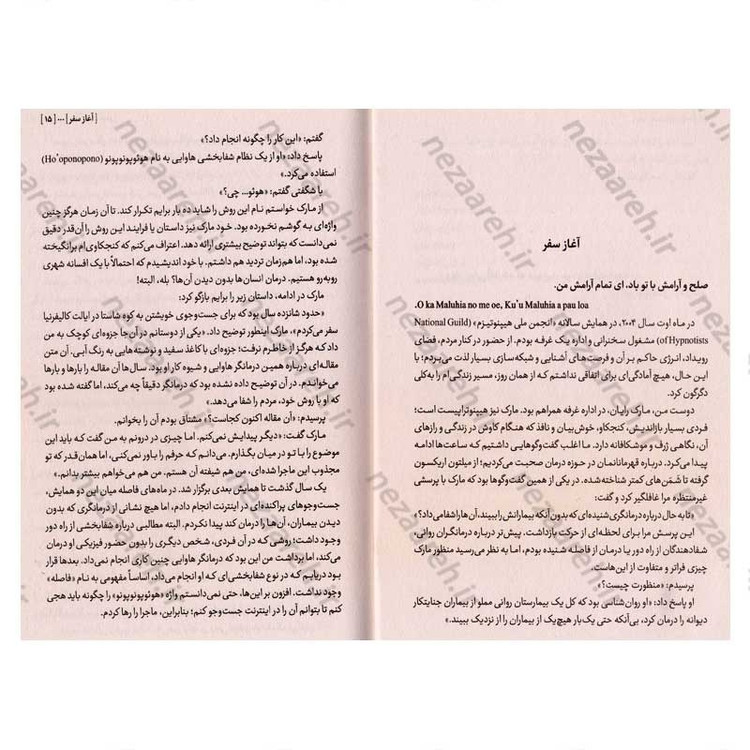 آغاز سفر
صلح و آرامش با تو باد، ای تمام آرامش من.
.O ka Maluhia no me oe, Ku'u Maluhia a pau loa
در ماه اوت سال ۲۰۰۴، در همایش سالانه «انجمن ملی هیپنوتیزم» (National Guild
of Hypnotists) مشغول سخنرانی و اداره یک غرفه بودم. از حضور در کنار مردم، فضای
رویداد، انرژی حاکم بر آن و فرصت‌های آشنایی و شبکه‌سازی بسیار لذت می‌بردم؛ با
این حال، هیچ آمادگی‌ای برای اتفاقی نداشتم که از همان روز، مسیر زندگی‌ام را به‌کلی
دگرگون کرد.
دوست من، مارک رایان، در اداره غرفه همراهم بود. مارک نیز هیپنوتراپیست است؛
فردی بسیار بازاندیش، کنجکاو، خوش‌بیان و نافذ که هنگام کاوش در زندگی و رازهای
آن، نگاهی ژرف و موشکافانه دارد. ما اغلب گفت‌وگوهایی داشتیم که ساعت‌ها ادامه
پیدا می‌کرد. درباره قهرمانانمان در حوزه درمان صحبت می‌کردیم؛ از میلتون اریکسون
گرفته تا شَمَن‌های کمتر شناخته‌شده. در یکی از همین گفت‌وگوها بود که مارک با پرسشی
غیرمنتظره مرا غافلگیر کرد و گفت:
«تا به حال درباره درمانگری شنیده‌ای که بدون آنکه بیمارانش را ببیند، آن‌ها را شفا می‌داد؟»
این پرسش مرا برای لحظه‌ای از حرکت بازداشت. پیش‌تر درباره درمانگران روانی،
شفادهندگان از راه دور یا درمان از فاصله شنیده بودم، اما به نظر می‌رسید منظور مارک
چیزی فراتر و متفاوت از این‌هاست.
پرسیدم: «منظورت چیست؟»
او پاسخ داد: «او روان‌شناسی بود که کل یک بیمارستان روانی مملو از بیماران جنایتکار
دیوانه را درمان کرد، بی‌آنکه حتی یک‌بار هیچ‌یک از بیماران را از نزدیک ببیند.»
[ آغاز سفر | ... [ ۱۵ ]
گفتم: «این کار را چگونه انجام داد؟»
پاسخ داد: «او از یک نظام شفابخشی هاوایی به نام هوئوپونوپونو (Ho'oponopono)
استفاده می‌کرد.»
با شگفتی گفتم: «هوئو... چی؟»
از مارک خواستم نام این روش را شاید ده بار برایم تکرار کند. تا آن زمان هرگز چنین
واژه‌ای به گوشم نخورده بود. خود مارک نیز داستان یا فرایند این روش را آن‌قدر دقیق
نمی‌دانست که بتواند توضیح بیشتری ارائه دهد. اعتراف می‌کنم که کنجکاوی‌ام برانگیخته
شد، اما هم‌زمان تردید هم داشتم. با خود اندیشیدم که احتمالاً با یک افسانه شهری
روبه‌رو هستیم. درمان انسان‌ها بدون دیدن آن‌ها؟ بله، البته!
مارک در ادامه، داستان زیر را برایم بازگو کرد:
«حدود شانزده سال بود که برای جست‌وجوی خویشتن به کوه شاستا در ایالت کالیفرنیا
سفر می‌کردم»، مارک این‌طور توضیح داد. «یکی از دوستانم در آن جا جزوه‌ای کوچک به من
داد که هرگز از خاطرم نرفت؛ جزوه‌ای با کاغذ سفید و نوشته‌هایی به رنگ آبی. آن متن
مقاله‌ای درباره همین درمانگر هاوایی و شیوه کار او بود. سال‌ها آن مقاله را بارها و بارها
می‌خواندم. در آن توضیح داده نشده بود که درمانگر دقیقاً چه می‌کند، اما گفته شده بود
که او با روش خود، مردم را شفا می‌دهد.»
پرسیدم: «آن مقاله اکنون کجاست؟» مشتاق بودم آن را بخوانم.
مارک گفت: «دیگر پیدایش نمی‌کنم. اما چیزی در درونم به من گفت که باید این
موضوع را با تو در میان بگذارم. می‌دانم که حرفم را باور نمی‌کنی، اما همان‌قدر که تو
مجذوب این ماجرا شده‌ای، من هم شیفته آن هستم. من هم می‌خواهم بیشتر بدانم.»
یک سال گذشت تا همایش بعدی برگزار شد. در ماه‌های فاصله میان این دو همایش،
جست‌وجوهای پراکنده‌ای در اینترنت انجام دادم، اما هیچ نشانی از درمانگری که بدون
دیدن بیماران، آن‌ها را درمان کند پیدا نکردم. البته مطالبی درباره شفابخشی از راه دور
وجود داشت؛ روشی که در آن فردی، شخص دیگری را بدون حضور فیزیکی او درمان
می‌کند، اما برداشت من این بود که درمانگر هاوایی چنین کاری انجام نمی‌داد. بعدها قرار
بود دریابم که در نوع شفابخشی‌ای که او انجام می‌داد، اساساً مفهومی به نام «فاصله»
وجود نداشت. افزون بر این‌ها، حتی نمی‌دانستم واژه «هوئوپونوپونو» را چگونه باید هجی
کنم تا بتوانم آن را در اینترنت جست‌وجو کنم؛ بنابراین، ماجرا را رها کردم.
nezaareh.ir